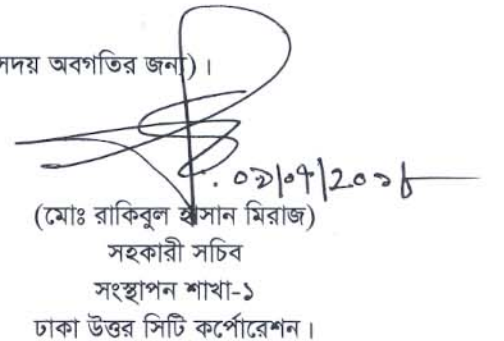 সদয় অবগতির জন্য)।
(মোঃ রাকিবুল হাসান মিরাজ)
সহকারী সচিব
সংস্থাপন শাখা-১
ঢাকা উত্তর সিটি কর্পোরেশন।